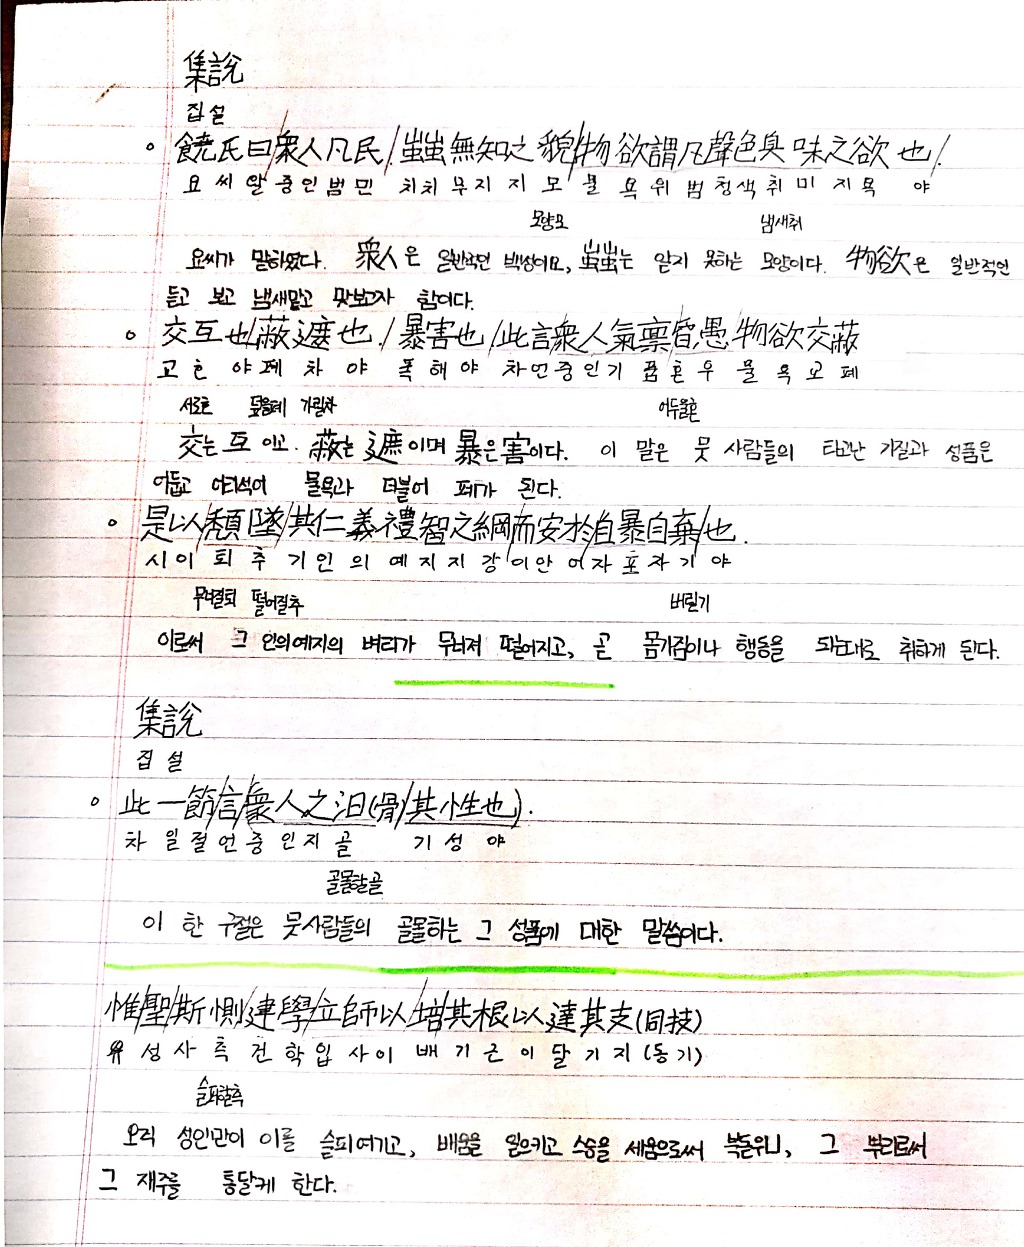 集說
집 설
饒氏曰衆人凡民 蚩蚩無知之貌 物欲謂凡聲色臭味之欲也
요 씨 왈 중 인 범 민 치 치 무 지 지 모 물 욕 위 범 청 색 취 미 지 욕 야
모양모 냄새취
요씨가 말하였다. 衆人은 일반적인 백성이요, 蚩蚩는 알지 못하는 모양이다. 物欲은 일반적인
듣고 보고 냄새맡고 맛보고자 함이다.
交互也 蔽遮也 暴害也 此言衆人氣稟昏愚 物欲交蔽
고 호 야 폐 차 야 폭 해 야 차 언 중 인 기 품 혼 우 물 욕 교 폐
서로호 덮을폐 가릴차 어두울혼
交는 互 이고. 蔽는 遮이며 暴은 害이다. 이 말은 뭇 사람들의 타고난 기질과 성품은
어둡고 어리석어 물욕과 더불어 폐가 된다.
是以頹墜其仁義禮智之綱而安於自暴自棄也.
시 이 퇴 추 기 인 의 예 지 지 강 이 안 어 자 포 자 기 야
무너질퇴 떨어질추 버릴기
이로써 그 인의예지의 벼리가 무너져 떨어지고, 곧 몸가짐이나 행동을 되는대로 취하게 된다.
集說
집 설
此一節言衆人之汨(骨)其性也).
차 일 절 언 중 인 지 골 기 성 야
골몰할골
이 한 구절은 뭇사람들의 골몰하는 그 성품에 대한 말씀이다.
惟聖斯惻建學立師以培其根以達其支(同技)
유 성 사 측 건 학 입 사 이 배 기 근 이 달 기 지 (동 기)
슬퍼할측
오직 성인만이 이를 슬피여기고, 배움을 일으키고 스승을 세움으로써 북돋우니, 그 뿌리로써
그 재주를 통달케 한다.